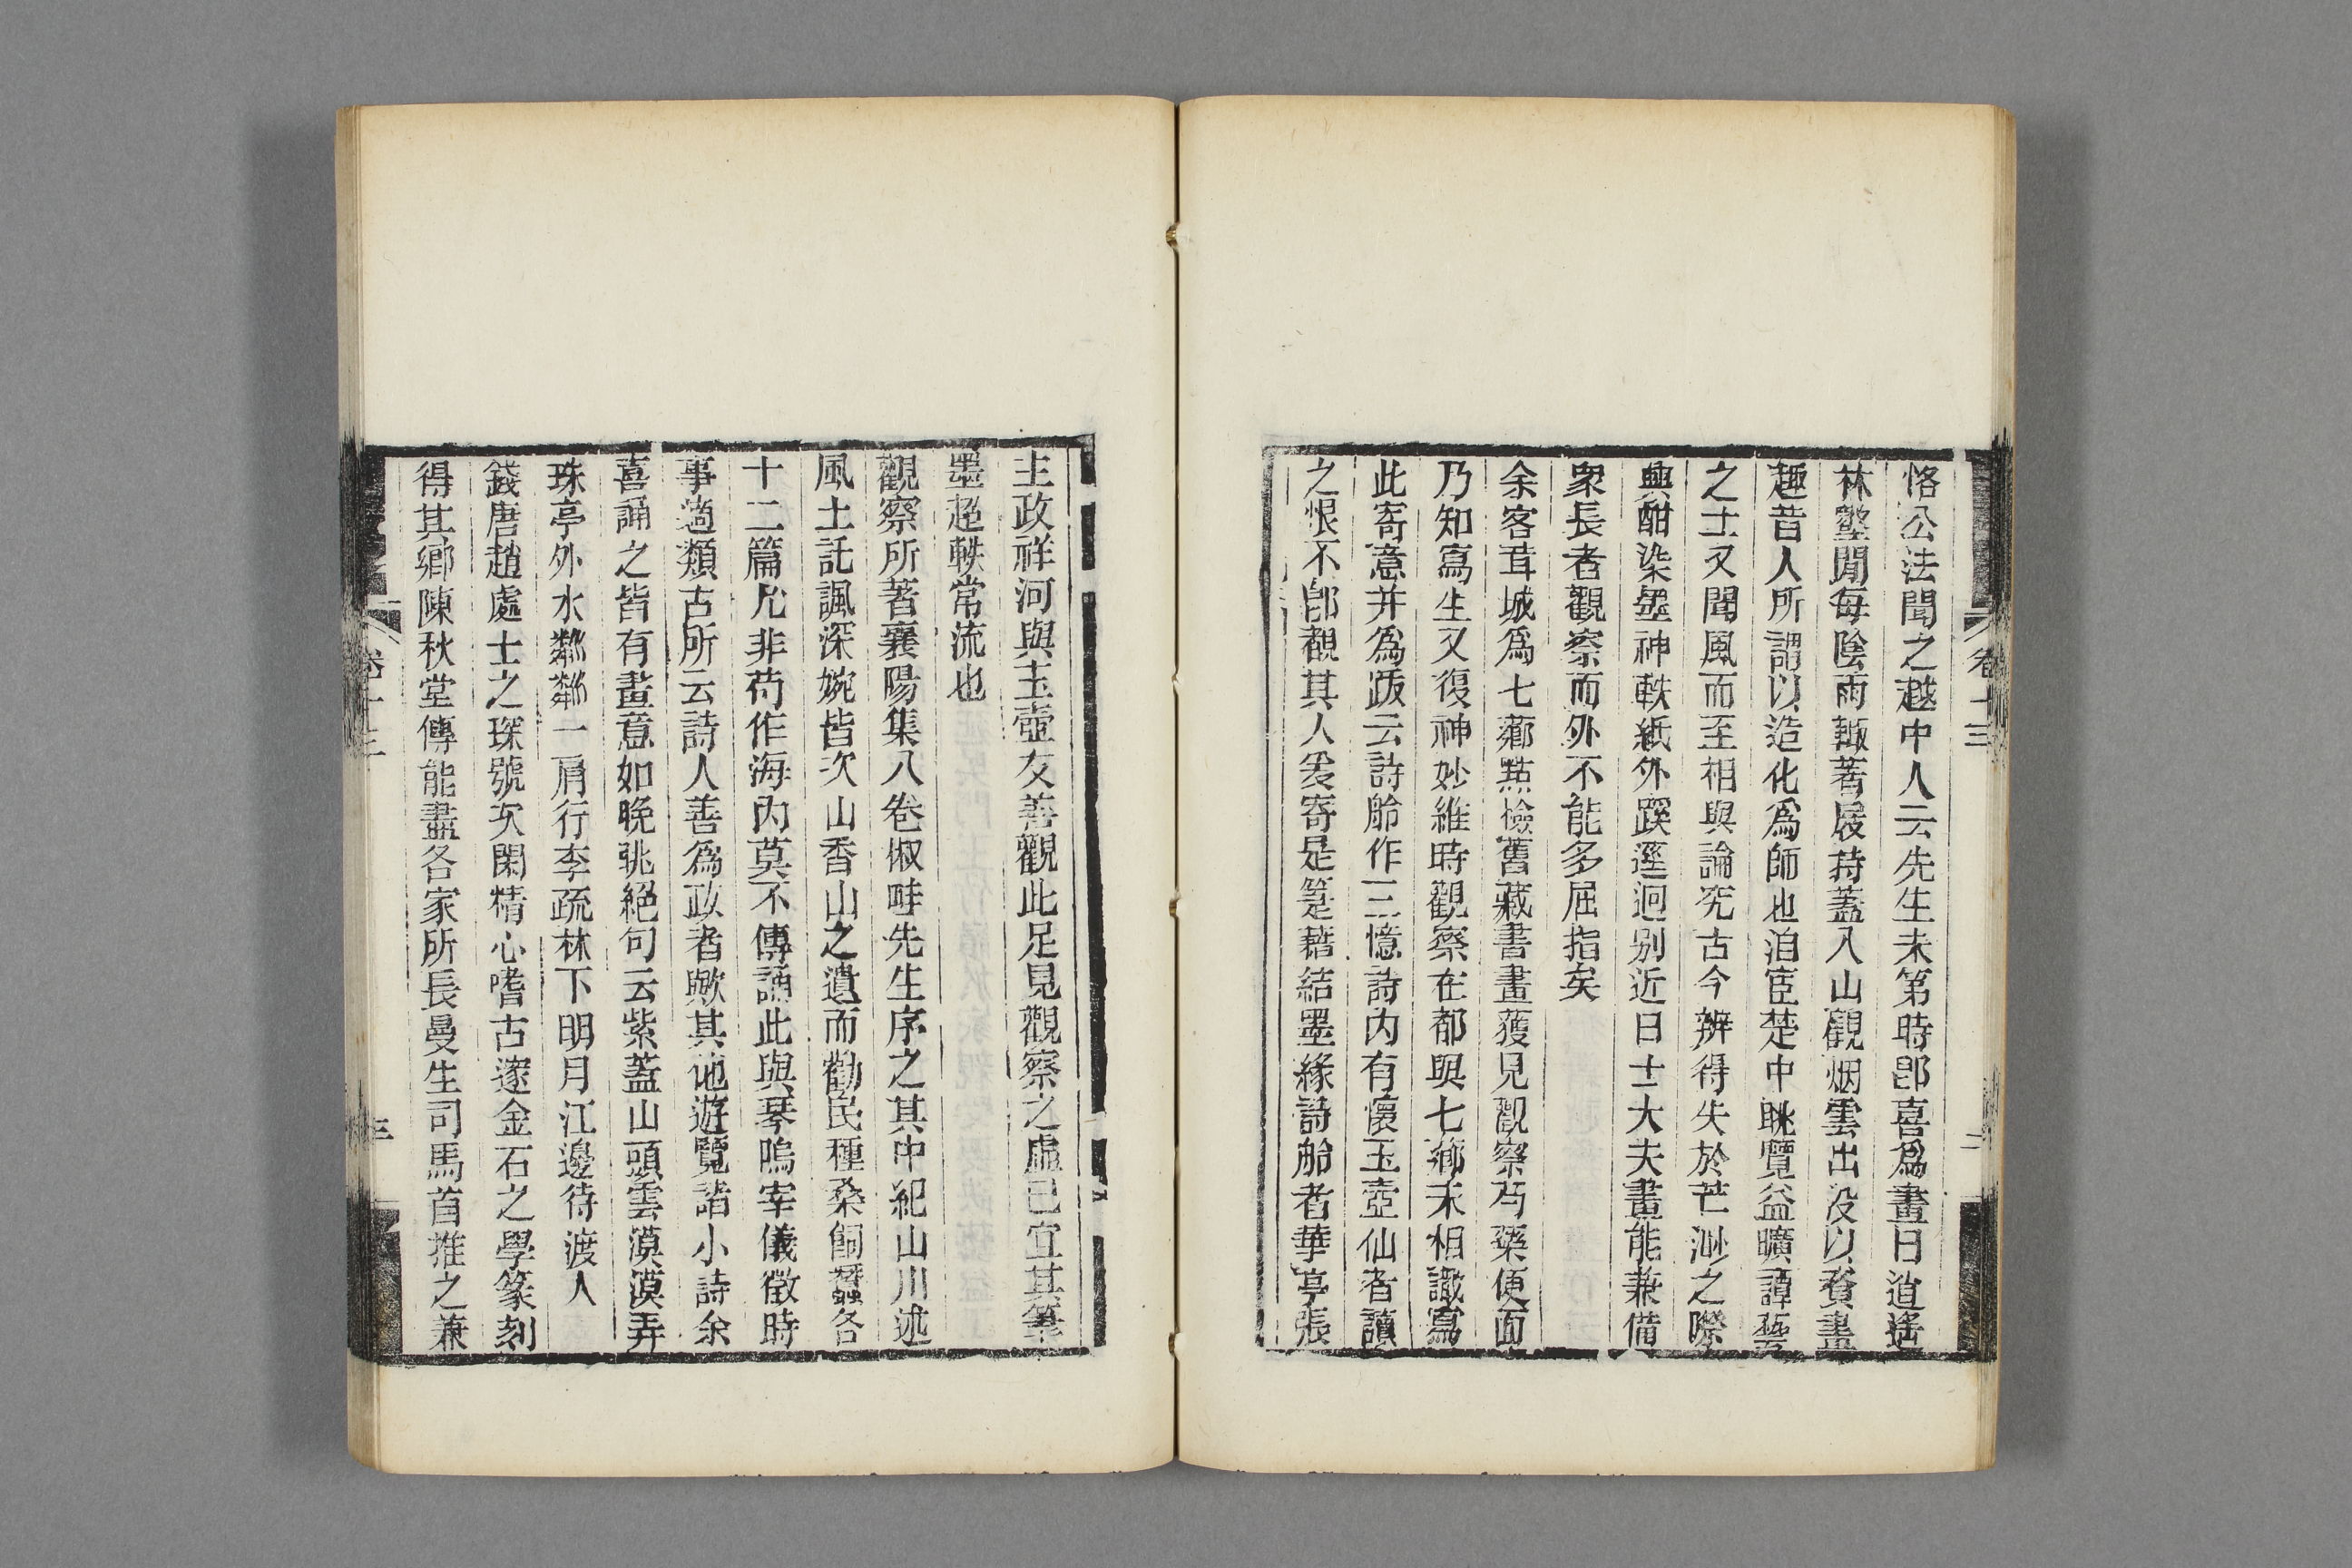 恪公法聞之越中人云先生未第時卽喜爲畫日逍遙
林壑閒每陰雨輙著屐持蓋入山觀烟雲出沒以資畫
趣昔人所謂以造化爲師也洎宦楚中眺覽益曠譚藝
之士又聞風而至相與論究古今辨得失於芒渺之際
興酣染墨神軼紙外蹊逕迥别近日士大夫畫能兼備
衆長者觀察而外不能多屈指矣
余客茸城爲七薌點檢舊藏書畫獲見觀察芍藥便面
乃知寫生又復神妙維時觀察在都與七薌未相識寫
此寄意并爲䟦云詩舲作三憶詩内有懷玉壺仙者讀
之恨不卽覩其人爰寄是箑藉結墨緣詩舲者華亭張
卷十三
二
主政祥河與玉壺友善觀此足見觀察之虛已宜其筆
墨超軼常流也
觀察所著襄陽集八卷椒畦先生序之其中紀山川述
風土託諷深婉皆次山香山之遺而勸民種桑飼蠶各
十二篇尤非苟作海内莫不傳誦此與琴鳴宰儀徵時
事適類古所云詩人善爲政者歟其他遊覽諸小詩余
喜誦之皆有畫意如晚眺絕句云紫蓋山頭雲漠漠弄
珠亭外水粼粼一肩行李疏林下明月江邊待渡人
錢唐趙處士之琛號次閑精心嗜古邃金石之學篆刻
得其鄉陳秋堂傳能盡各家所長曼生司馬首推之兼
卷十三
三